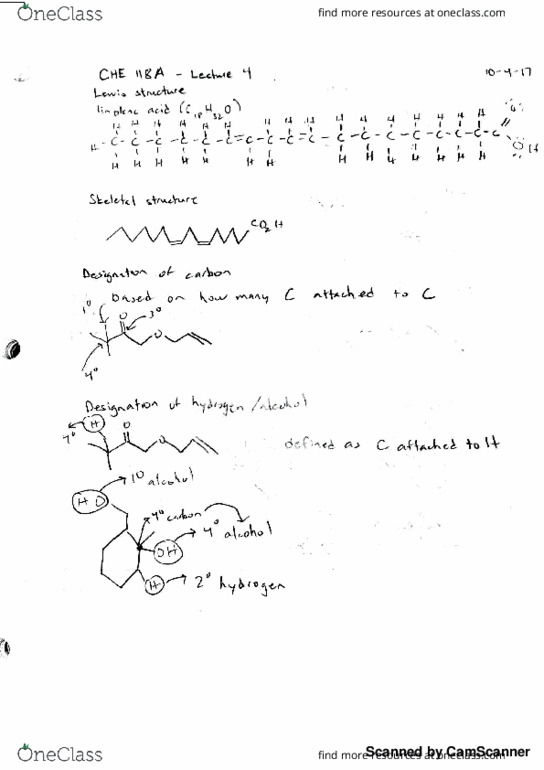 OneClass
find more resources at oneclass.com
CHE 118A - Lecture 4
10-4-17
Lewis structure
linolenic acid (C18H32O)
H H H H H H H H H H H H H H
H-C-C-C-C-C-C=C-C-C=C-C-C-C-C-C-C-C-C OH
H H H H H H H H H H H H H H
Skeletal structure
CO2H
Designation of carbon
based on how many C attached to C
1° O 3°
O
4°
Designation of hydrogen/alcohol
H O
O
defined as C attached to H
1° alcohol
HO
4° carbon
OH 4° alcohol
H 2° hydrogen
OneClass
find more resources at oneclass.com
Scanned by CamScanner